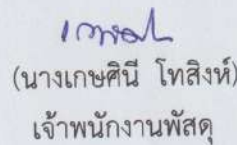 (นางเกษศินี โทสิงห์)
เจ้าพนักงานพัสดุ